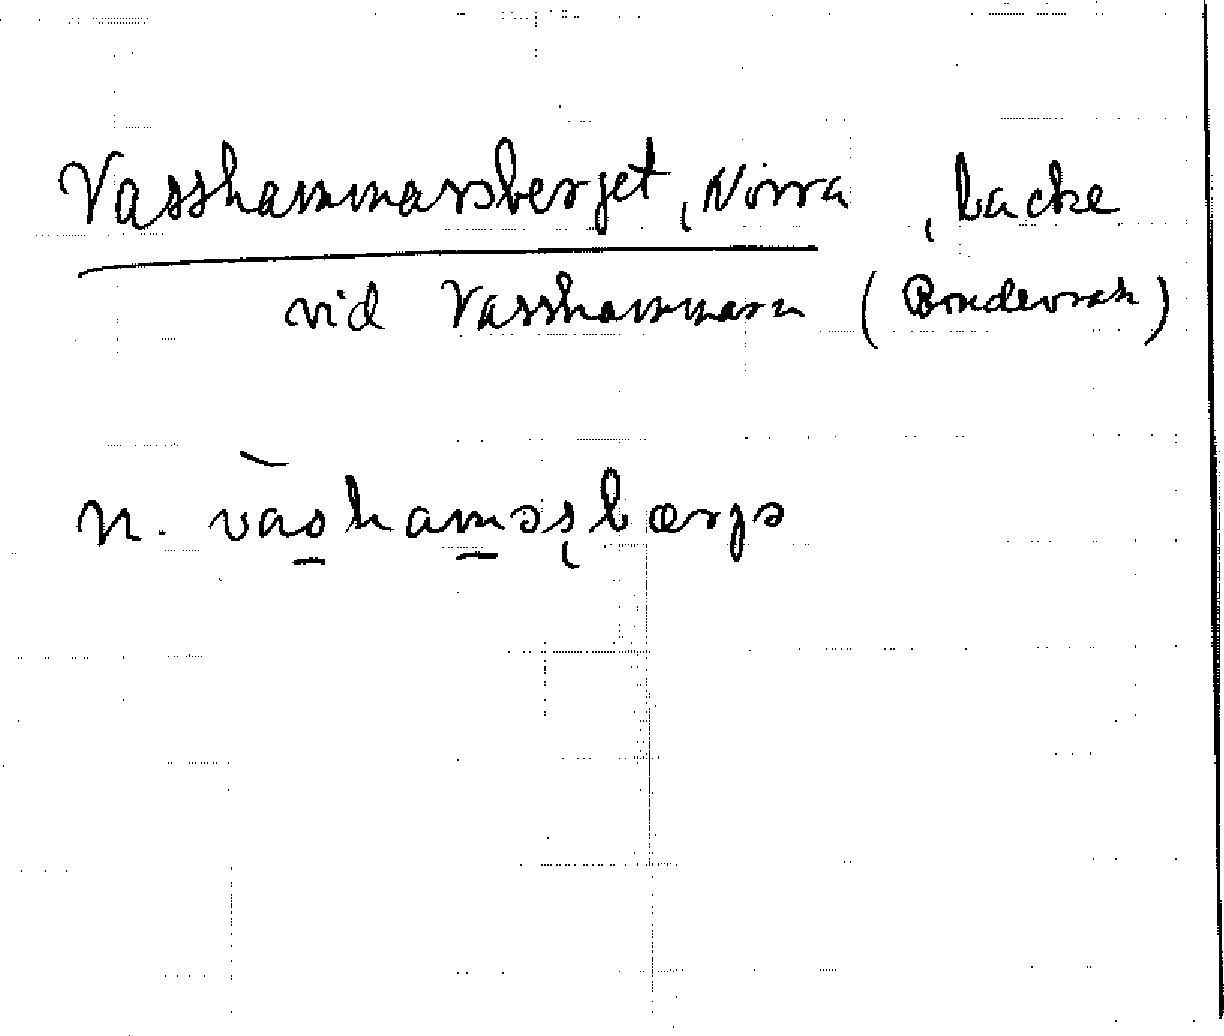 Vasshammarsberget, Norra, backe
vid Vasshammarn (Bondevrak)
n. vàshamsşbærgə